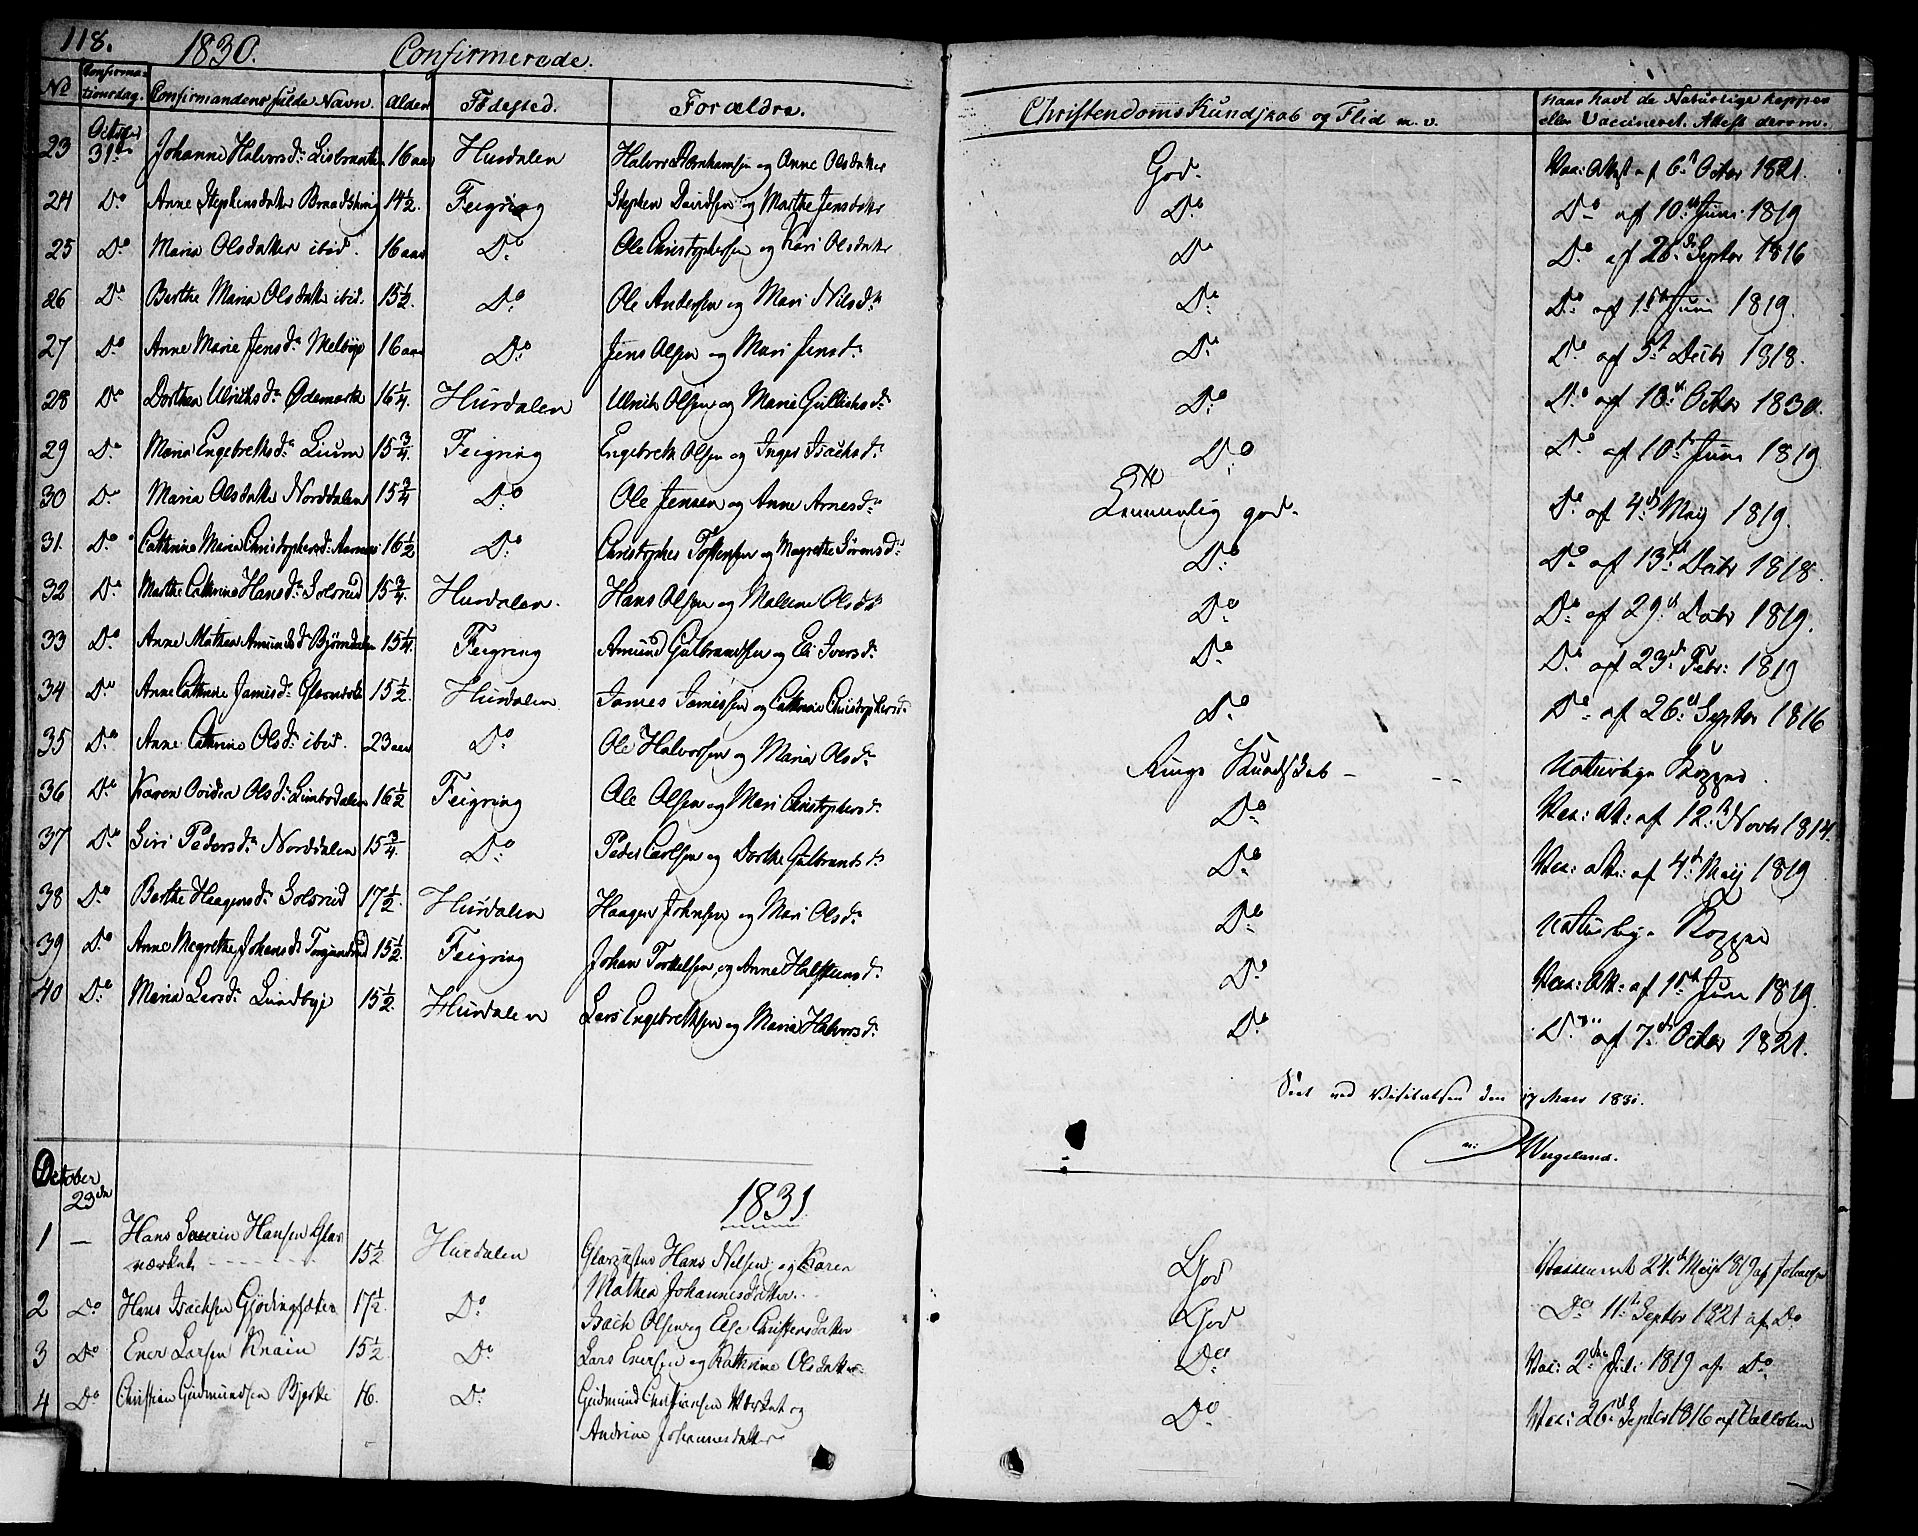 118. 1830. Confirmerede.
No Confirma-tionsdag. Confirmandens fulde Navn. Alder Fødested. Forældre. Christendoms Kundskab og Flid m. v. Naar havt de Naturlige Kopper eller Vaccineret. Attest derom.
23 October 31te Johanne Halvorsd: 16 aar Hurdalen Halvor og Anne Olsdatter God. Vac: Attest af 6. Octbr 1821.
24 Do Anne Stephensdatter 14½. Feigring Stephen Davidsen og Marthe Jensdatter Do Do af 10de Juni 1819
25 Do Maria Olsdatter ibid. 16 aar Do Ole Christophersen og Kari Olsdatter Do Do af 26de Septbr 1816
26 Do Berthe Maria Olsdatter ibid. 15½. Do Ole Andersen og Mari Nilsdr Do Do af 15de Juni 1819.
27 Do Anne Marie Jensdr Melbye 16 aar Do Jens Olsen og Mari Jensdr Do Do af 5te Decbr 1818.
28 Do Dorthea Ulriksdr Ødemark 16¼. Hurdalen Ulrik Olsen og Marie Gulliksdr Do Do af 18de Octbr 1830.
29 Do Maria Engebrethsdr Lium 15¾. Feigring Engebreth Olsen og Inger Isachsdr Do Do af 10de Juni 1819
30 Do Maria Olsdatter Norddalen 15¾ Do Ole Jensen og Anne Arnesdr Temmelig god. Do af 4de Maij 1819.
31. Do Cathrine Maria Christophersdr 16½ Do Christopher Tostensen og Magrethe Sörensdr Do Do af 13de Decbr 1818.
32 Do Marthe Cathrine Hansdr Solsrud 15¾. Hurdalen. Hans Olsen og Malene Olsdr Do Do af 29de 1819.
33 Do Anne Mathea Amundsd Bjørndalen 15¼. Feigring Amund Gulbrandsen og Eli Iversdr Do Do af 23de Febr: 1819
34 Do Anne Cathrine Jamesdr 15½ Hurdalen James Jamessen og Cathrine Christophersdr Do Do af 26de Septbr 1816
35 Do Anne Cathrine Olsdr ibid. 23 aar Do Ole Halvorsen og Maria Olsdr Ringe Kundskab - - - Naturlige Kopper.
36 Do Karen Olsdr 16½ Feigring Ole Olsen og Mari Christophersdr Do Vac: At: af 12te Novbr 1814.
37 Do Siri Pedersdr Norddalen 15¾. Do Peder Carlsen og Dorthe Gulbrandsdr Do Vac: At: af 4de Maij 1819
38 Do Berthe Haagensdr Solsrud 17½. Hurdalen Haagen Johnsen og Mari Olsdr Do Naturlige Kopper
39 Do Anne Magrethe Johansdr 15½. Feigring Johan Torkelsen og Anne Halstensdr Do Vac: Att: af 15de Juni 1819.
40 Do Maria Larsdr Lundbye 15½. Hurdalen Lars Engebrethsen og Maria Halvorsdr Do Do af 7de Octbr 1821.
Seet ved Visitatsen den 17 Mars 1831.
Wergeland.
October 23de 1831
1 — Hans Severin Hansen Glasværket - - - 15½ Hurdalen Hans Nilsen og Karen Mathea Johannesdatter. God Vaccineret 24de Maij 1819 af
2 Do Hans Isachsen Gjødingsæter 17½. Do Isach Olsen og Else Christensdatter God Do 11te Septbr 1821 af Do
3 Do Ener Larsen Knain 15½ Do Lars Enersen og Kathrine Olsdatter Do Vac: 2den Juli 1819 af Do
4 Do Christian Gudmundsen Bjerke 16. Do Gudmund Christiansen Værket og Andrine Johannesdatter Do Vac: 26de Septbr 1816 af